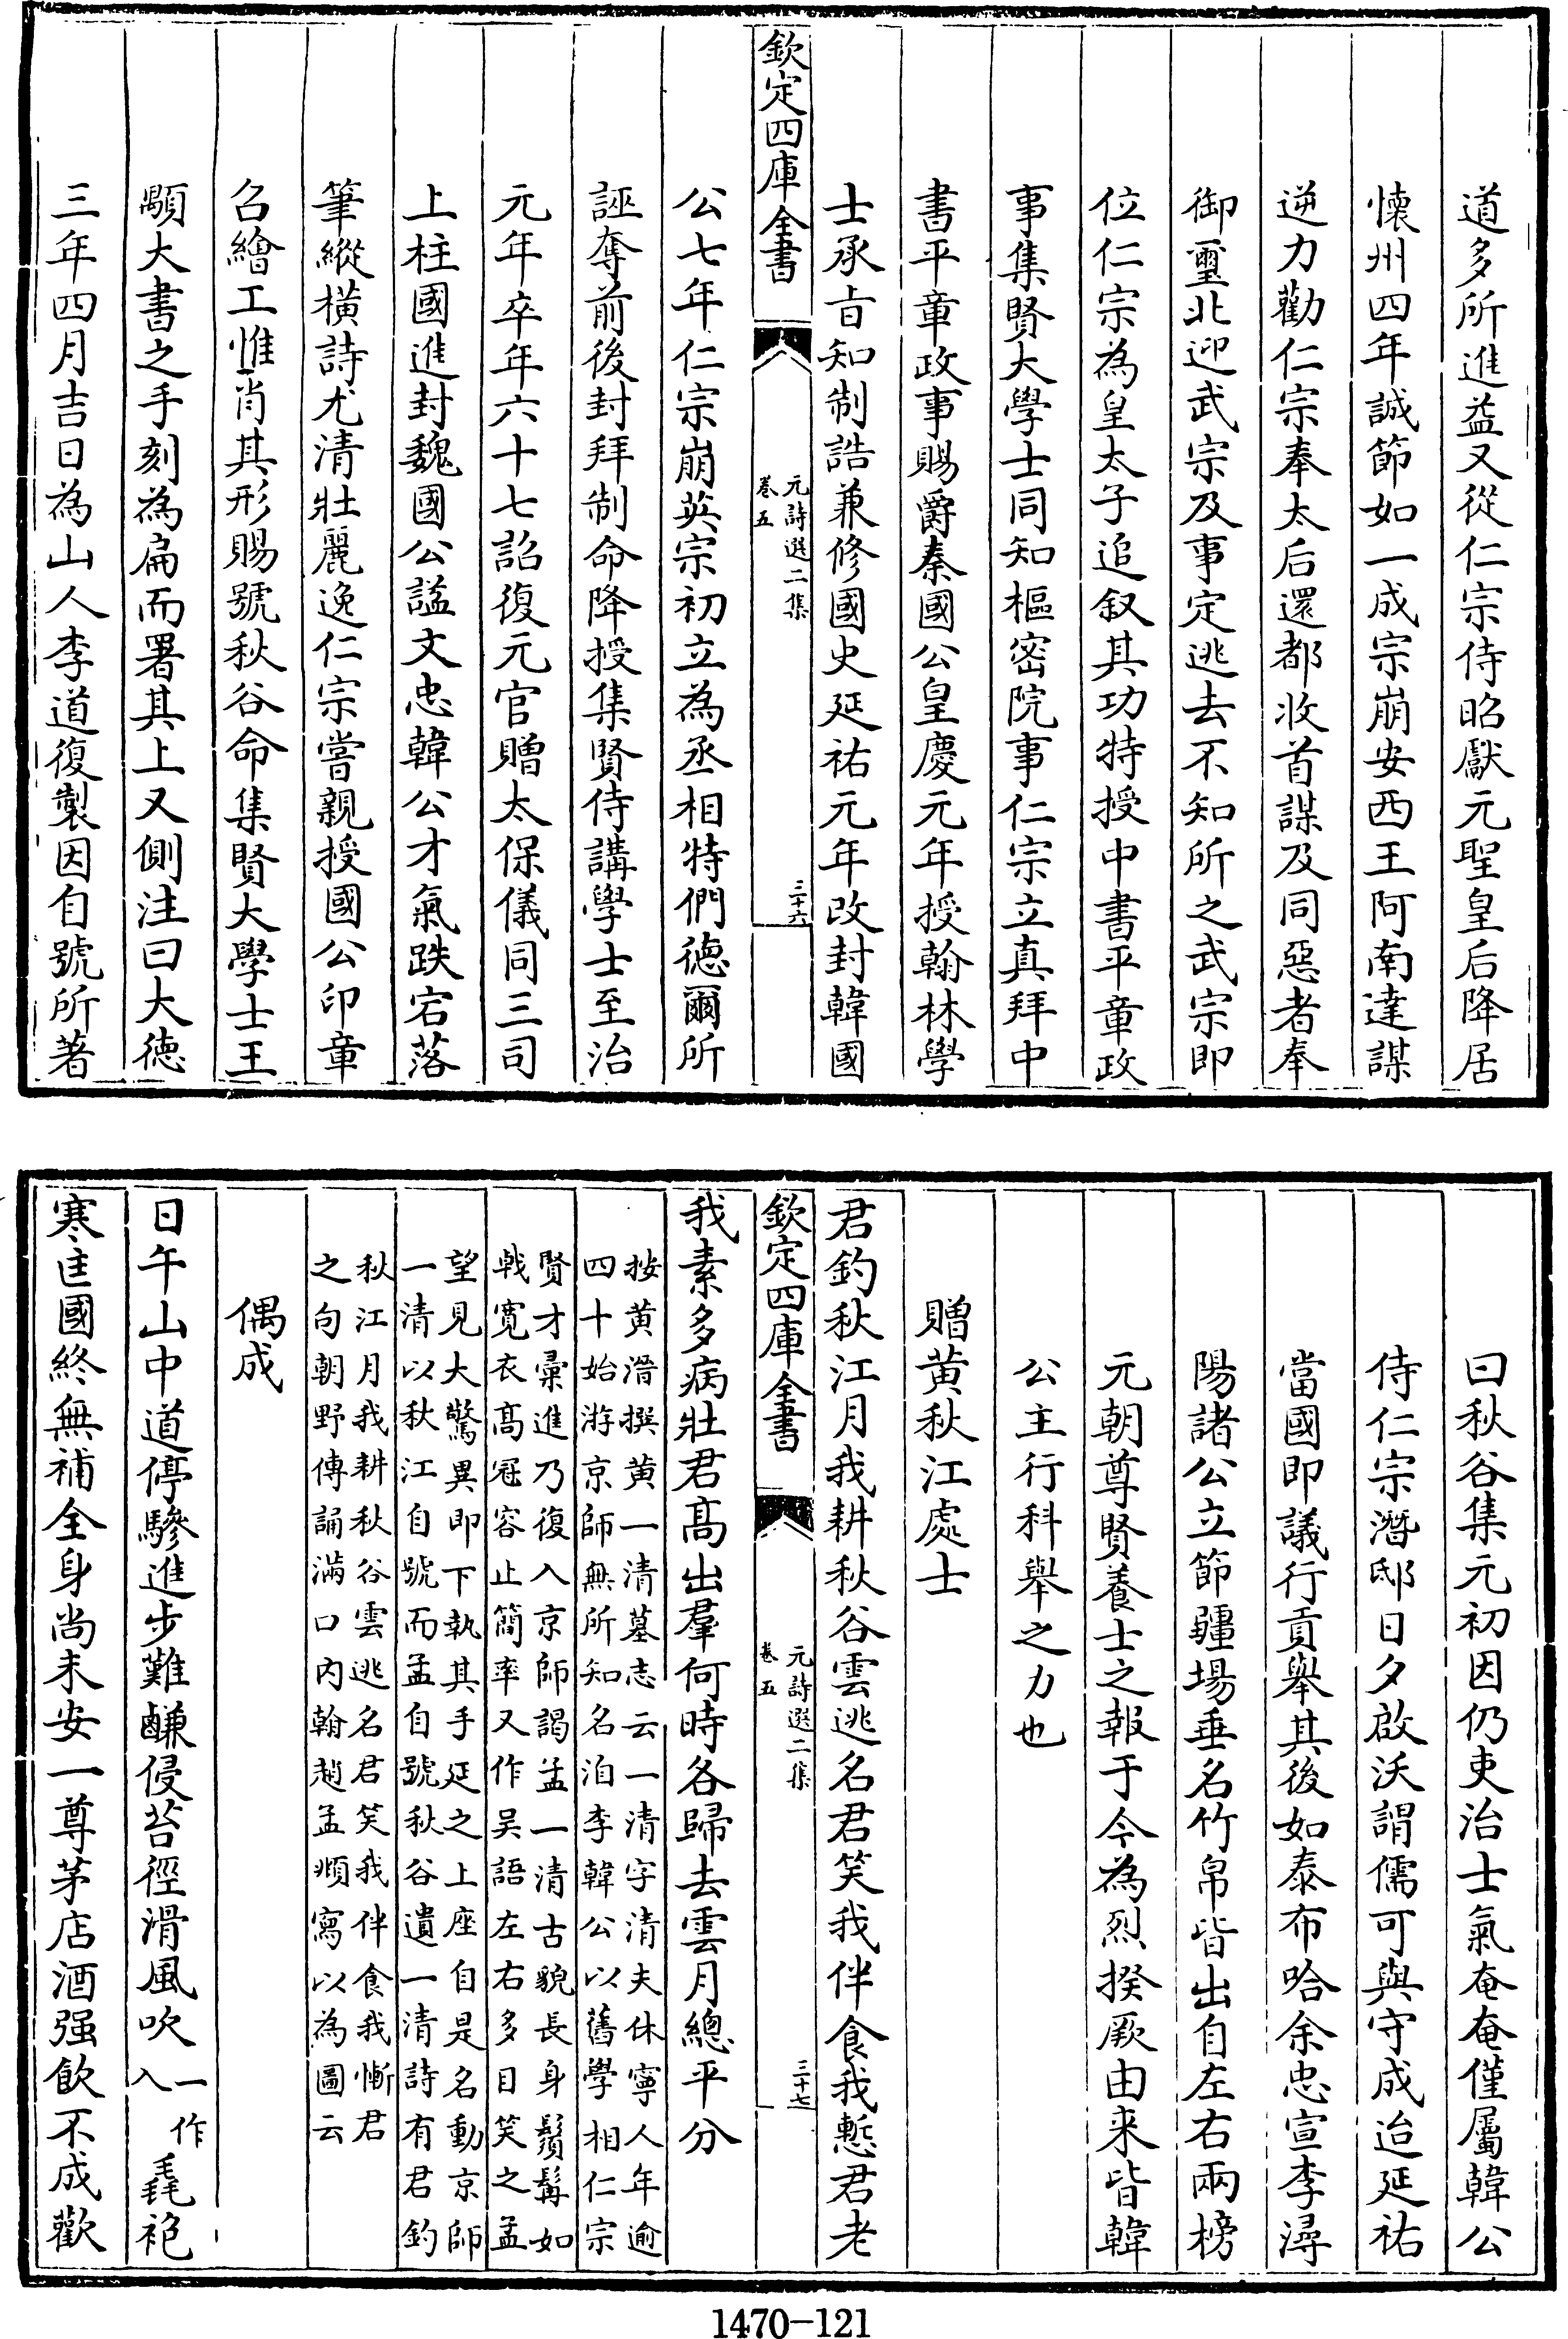 道多所進益又從仁宗侍昭獻元聖皇后降居
懷州四年誠節如一成宗崩安西王阿南達謀
逆力勸仁宗奉太后還都收首謀及同惡者奉
御璽北迎武宗及事定逃去不知所之武宗即
位仁宗為皇太子追叙其功特授中書平章政
事集賢大學士同知樞密院事仁宗立真拜中
書平章政事賜爵秦國公皇慶元年授翰林學
士承旨知制誥兼修國史延祐元年改封韓國
欽定四庫全書
元詩選二集
卷五
三十六
公七年仁宗崩英宗初立為丞相特們德爾所
誣奪前後封拜制命降授集賢侍講學士至治
元年卒年六十七詔復元官贈太保儀同三司
上柱國進封魏國公諡文忠韓公才氣跌宕落
筆縱橫詩尤清壯麗逸仁宗嘗親授國公印章
召繪工惟肖其形賜號秋谷命集賢大學士王
顒大書之手刻為扁而署其上又側注曰大徳
三年四月吉日為山人李道復製因自號所著
曰秋谷集元初因仍吏治士氣奄奄僅屬韓公
侍仁宗潛邸日夕啟沃謂儒可與守成迨延祐
當國即議行貢舉其後如泰布哈余忠宣李潯
陽諸公立節疆場垂名竹帛皆出自左右兩榜
元朝尊賢養士之報于今為烈揆厥由来皆韓
公主行科舉之力也
贈黄秋江處士
君釣秋江月我耕秋谷雲逃名君笑我伴食我慙君老
欽定四庫全書
元詩選二集
卷五
三十七
我素多病壯君髙出羣何時各歸去雲月總平分
按黄溍撰黄一清墓志云一清字清夫休寧人年逾
四十始游京師無所知名洎李韓公以舊學相仁宗
賢才彙進乃復入京師謁孟一清古貌長身鬚髯如
戟寛衣髙冠容止簡率又作吴語左右多目笑之孟
望見大驚異即下執其手延之上座自是名動京師
一清以秋江自號而孟自號秋谷遺一清詩有君釣
秋江月我耕秋谷雲逃名君笑我伴食我慚君
之句朝野傳誦滿口内翰趙孟順寫以為圖云
偶成
日午山中道停驂進步難鹻侵苔徑滑風吹一作入毳袍
寒匡國終無補全身尚未安一尊茅店酒强飲不成歡
1470-121